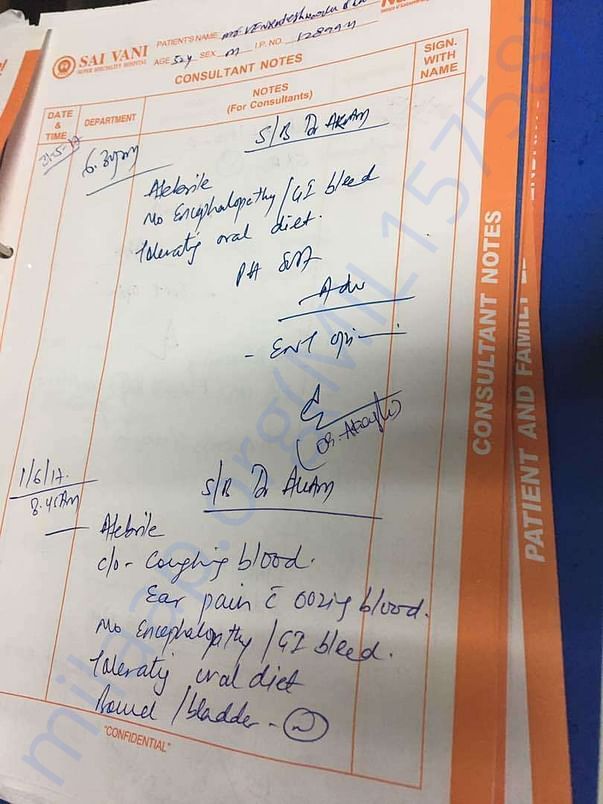 SAI VANI
SUPER SPECIALITY HOSPITAL
PATIENT'S NAME
AGE 52y SEX m I.P. NO.
CONSULTANT NOTES
DATE & TIME
DEPARTMENT
NOTES
(For Consultants)
SIGN. WITH NAME
S/B Dr
Afebrile
No Encephalopathy / GI bleed
Tolerating oral diet.
Adv
- ENT
1/6/17.
8.45Am
S/B Dr
Afebrile
c/o - Coughing blood.
Ear pain c̄ oozing blood.
No Encephalopathy / GI bleed.
Tolerating oral diet
Bowel / bladder - N
"CONFIDENTIAL"
CONSULTANT NOTES
PATIENT AND FAMILY
milaap.org(MIL157589)